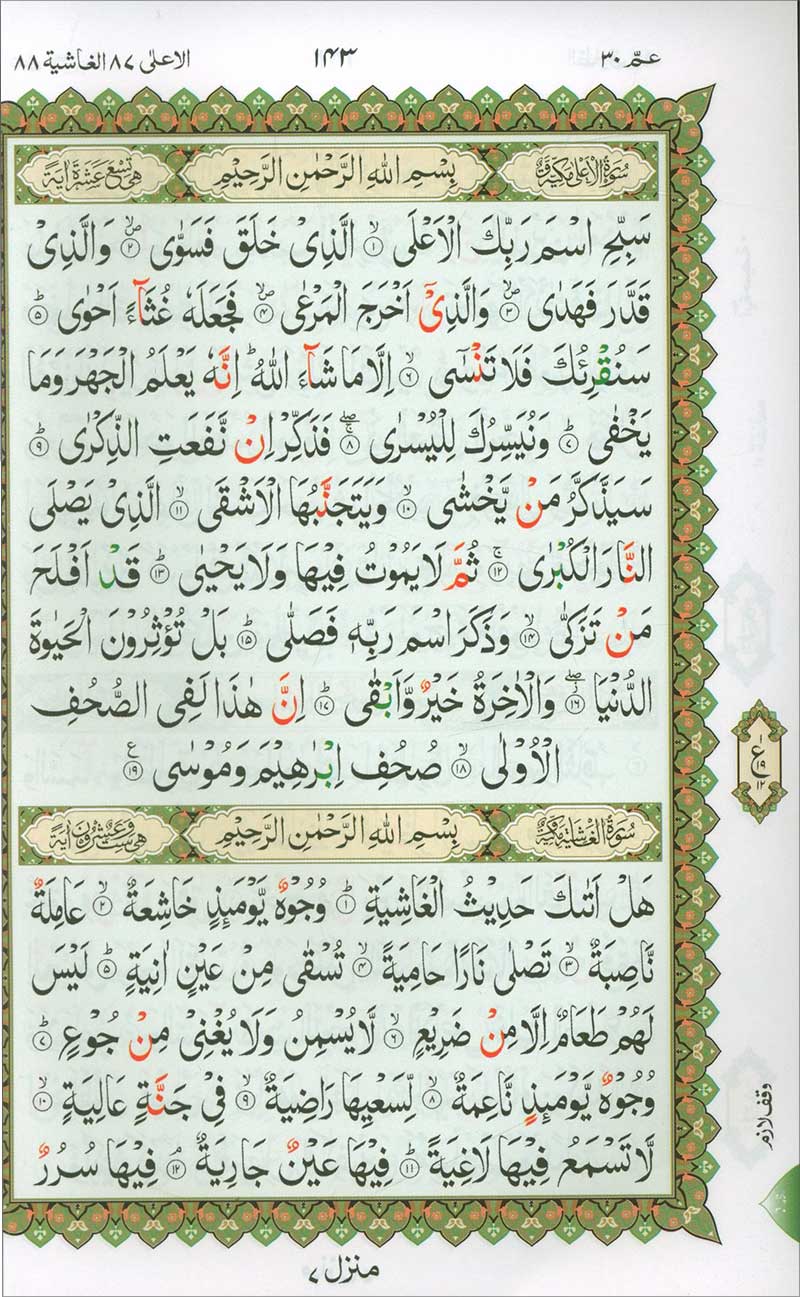 عمّ ۳۰
۱۴۳
الاعلى ۸۷ الغاشية ۸۸
سُوْرَةُ الْاَعْلٰى مَكِّيَّةٌ
بِسْمِ اللهِ الرَّحْمٰنِ الرَّحِيْمِ
هِىَ تِسْعَ عَشَرَةَ اٰيَةً
سَبِّحِ اسْمَ رَبِّكَ الْاَعْلَى ۙ﴿۱﴾ الَّذِىْ خَلَقَ فَسَوّٰى ۪ۙ﴿۲﴾ وَالَّذِىْ
قَدَّرَ فَهَدٰى ۪ۙ﴿۳﴾ وَالَّذِىْٓ اَخْرَجَ الْمَرْعٰى ۪ۙ﴿۴﴾ فَجَعَلَهٗ غُثَآءً اَحْوٰى ؕ﴿۵﴾
سَنُقْرِئُكَ فَلَا تَنْسٰٓى ۙ﴿۶﴾ اِلَّا مَا شَآءَ اللهُ ؕ اِنَّهٗ يَعْلَمُ الْجَهْرَ وَمَا
يَخْفٰى ؕ﴿۷﴾ وَنُيَسِّرُكَ لِلْيُسْرٰى ۚۖ﴿۸﴾ فَذَكِّرْ اِنْ نَّفَعَتِ الذِّكْرٰى ؕ﴿۹﴾
سَيَذَّكَّرُ مَنْ يَّخْشٰى ۙ﴿۱۰﴾ وَيَتَجَنَّبُهَا الْاَشْقَى ۙ﴿۱۱﴾ الَّذِىْ يَصْلَى
النَّارَ الْكُبْرٰى ۚ﴿۱۲﴾ ثُمَّ لَا يَمُوْتُ فِيْهَا وَلَا يَحْيٰى ؕ﴿۱۳﴾ قَدْ اَفْلَحَ
مَنْ تَزَكّٰى ۙ﴿۱۴﴾ وَذَكَرَ اسْمَ رَبِّهٖ فَصَلّٰى ؕ﴿۱۵﴾ بَلْ تُؤْثِرُوْنَ الْحَيٰوةَ
الدُّنْيَا ۖ﴿۱۶﴾ وَالْاٰخِرَةُ خَيْرٌ وَّاَبْقٰى ؕ﴿۱۷﴾ اِنَّ هٰذَا لَفِى الصُّحُفِ
الْاُوْلٰى ۙ﴿۱۸﴾ صُحُفِ اِبْرٰهِيْمَ وَمُوْسٰى ﴿۱۹﴾ ع
سُوْرَةُ الْغَاشِيَةِ مَكِّيَّةٌ
بِسْمِ اللهِ الرَّحْمٰنِ الرَّحِيْمِ
هِىَ سِتٌّ وَّعِشْرُوْنَ اٰيَةً
هَلْ اَتٰىكَ حَدِيْثُ الْغَاشِيَةِ ؕ﴿۱﴾ وُجُوْهٌ يَّوْمَئِذٍ خَاشِعَةٌ ۙ﴿۲﴾ عَامِلَةٌ
نَّاصِبَةٌ ۙ﴿۳﴾ تَصْلٰى نَارًا حَامِيَةً ۙ﴿۴﴾ تُسْقٰى مِنْ عَيْنٍ اٰنِيَةٍ ؕ﴿۵﴾ لَيْسَ
لَهُمْ طَعَامٌ اِلَّا مِنْ ضَرِيْعٍ ۙ﴿۶﴾ لَّا يُسْمِنُ وَلَا يُغْنِىْ مِنْ جُوْعٍ ؕ﴿۷﴾
وُجُوْهٌ يَّوْمَئِذٍ نَّاعِمَةٌ ۙ﴿۸﴾ لِّسَعْيِهَا رَاضِيَةٌ ۙ﴿۹﴾ فِىْ جَنَّةٍ عَالِيَةٍ ۙ﴿۱۰﴾
لَّا تَسْمَعُ فِيْهَا لَاغِيَةً ؕ﴿۱۱﴾ فِيْهَا عَيْنٌ جَارِيَةٌ ۘ﴿۱۲﴾ فِيْهَا سُرُرٌ
وقف لازم
منزل ۷